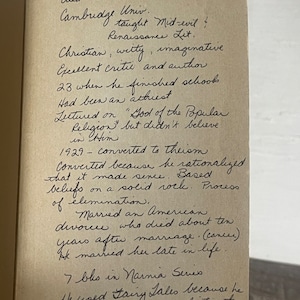 Cambridge Univ.
taught Mid-evil &
Renaissance Lit.
Christian, witty, imaginative
Excellent critic and author
23 when he finished schools
Had been an atheist
Lectured on "God of the Popular
Religion" but didn't believe
in Him
1929 - converted to theism
Converted because he rationalized
that it made sense. Based
beliefs on a solid rock. Process
of elimination.
Married an American
divorcee who died about ten
years after marriage. (cancer)
He married her late in life.
7 bks in Narnia Series
He used Fairy Tales because he